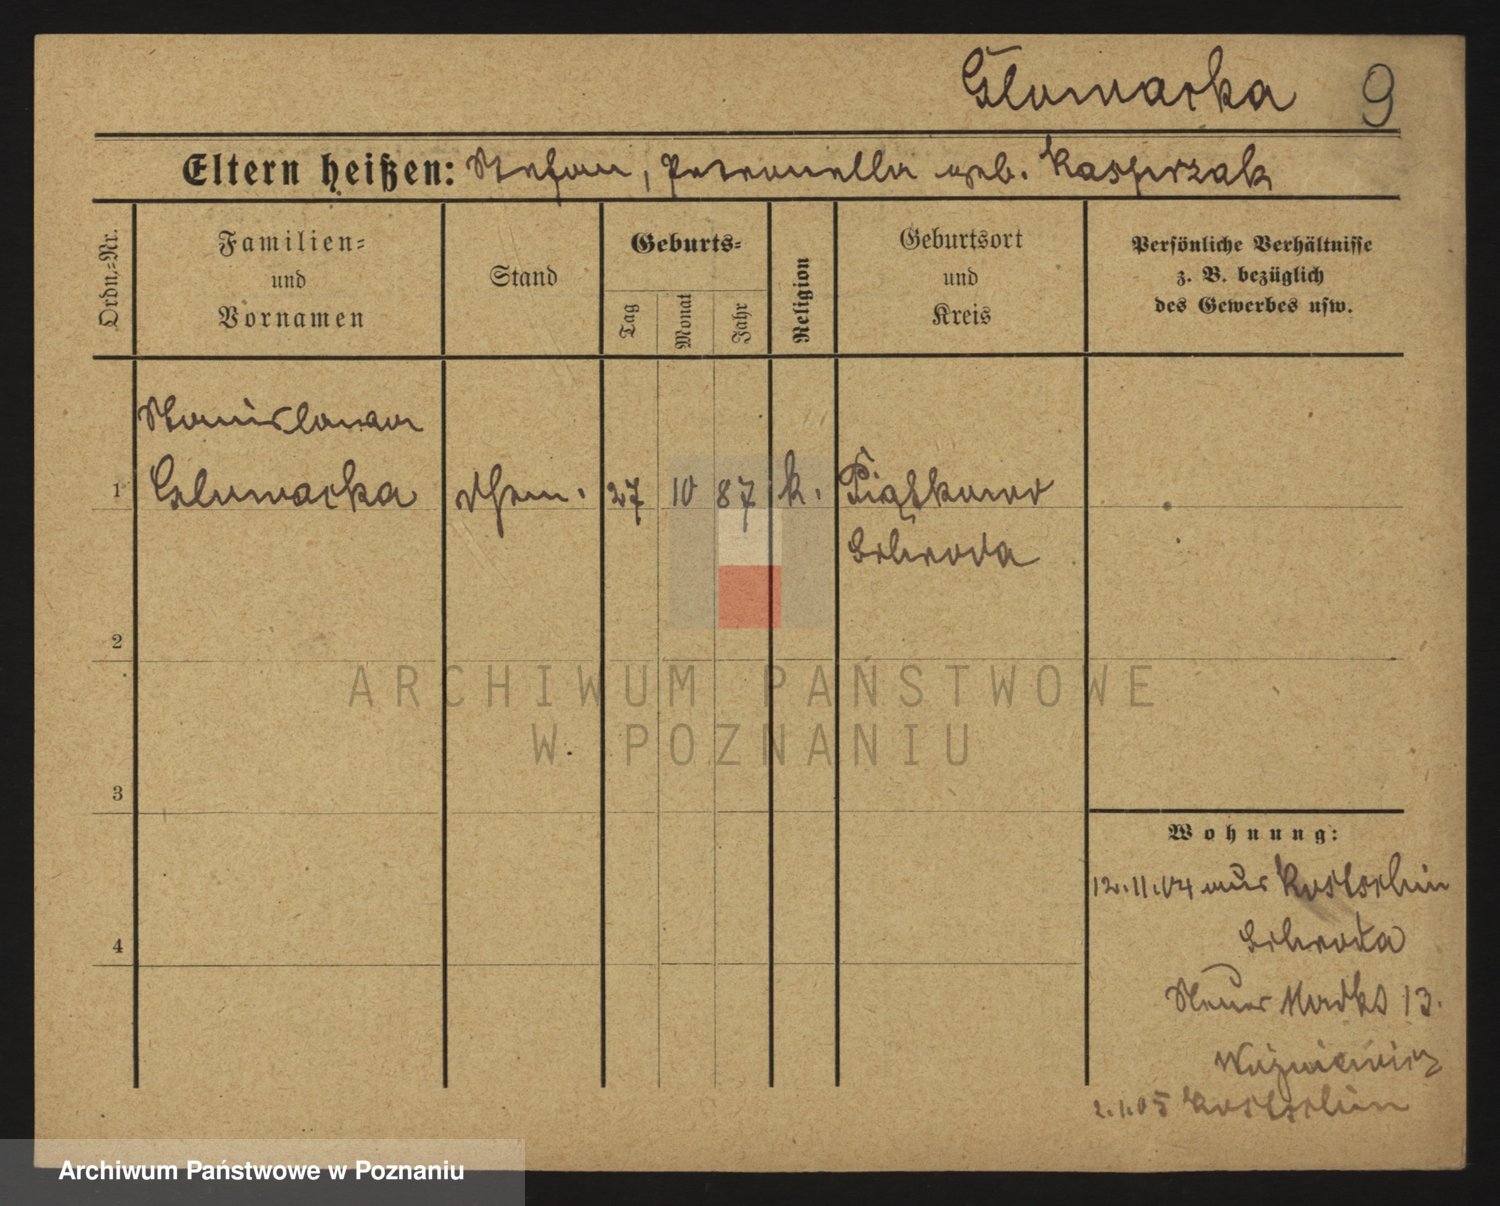 Głowacka 9
Eltern heißen: Stefan, Petronella geb. Kasprzak
Ordn.-Nr.
Familien-
und
Vornamen
Stand
Geburts-
Tag
Monat
Jahr
Religion
Geburtsort
und
Kreis
Persönliche Verhältnisse
z. B. bezüglich
des Gewerbes usw.
Stanislawa
1 Glowacka 27 10 87 k. Piątkowo
Schroda
2
3
4
ARCHIWUM PAŃSTWOWE
W POZNANIU
Wohnung:
12.11.04 aus Kostschin
Schroda
Neuer Markt 13.
2.1.05 Kostschin
Archiwum Państwowe w Poznaniu